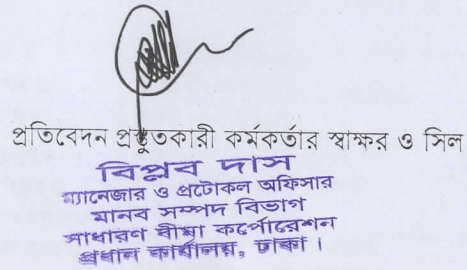 প্রতিবেদন প্রস্তুতকারী কর্মকর্তার স্বাক্ষর ও সিল
বিপ্লব দাস
ম্যানেজার ও প্রটোকল অফিসার
মানব সম্পদ বিভাগ
সাধারণ বীমা কর্পোরেশন
প্রধান কার্যালয়, ঢাকা।